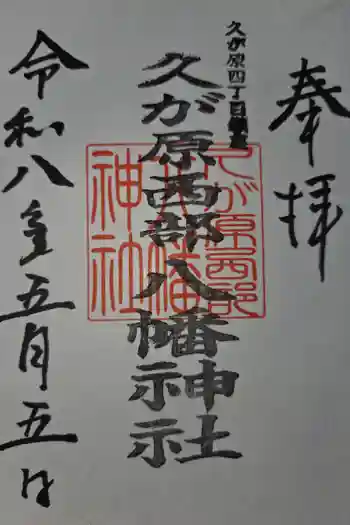 奉拝
久が原四丁目鎮座
久が原西部八幡神社
久が原西部
八幡
神社
令和八年五月五日